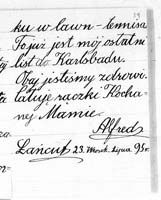 ku w lawn-tennisa
To już jest mój ostatni
list do Karlsbadu.
Obaj jesteśmy zdrowi.
Całuję rączki Kocha-
nej Mamie
Alfred
Łańcut 23. Lipca 95 r.